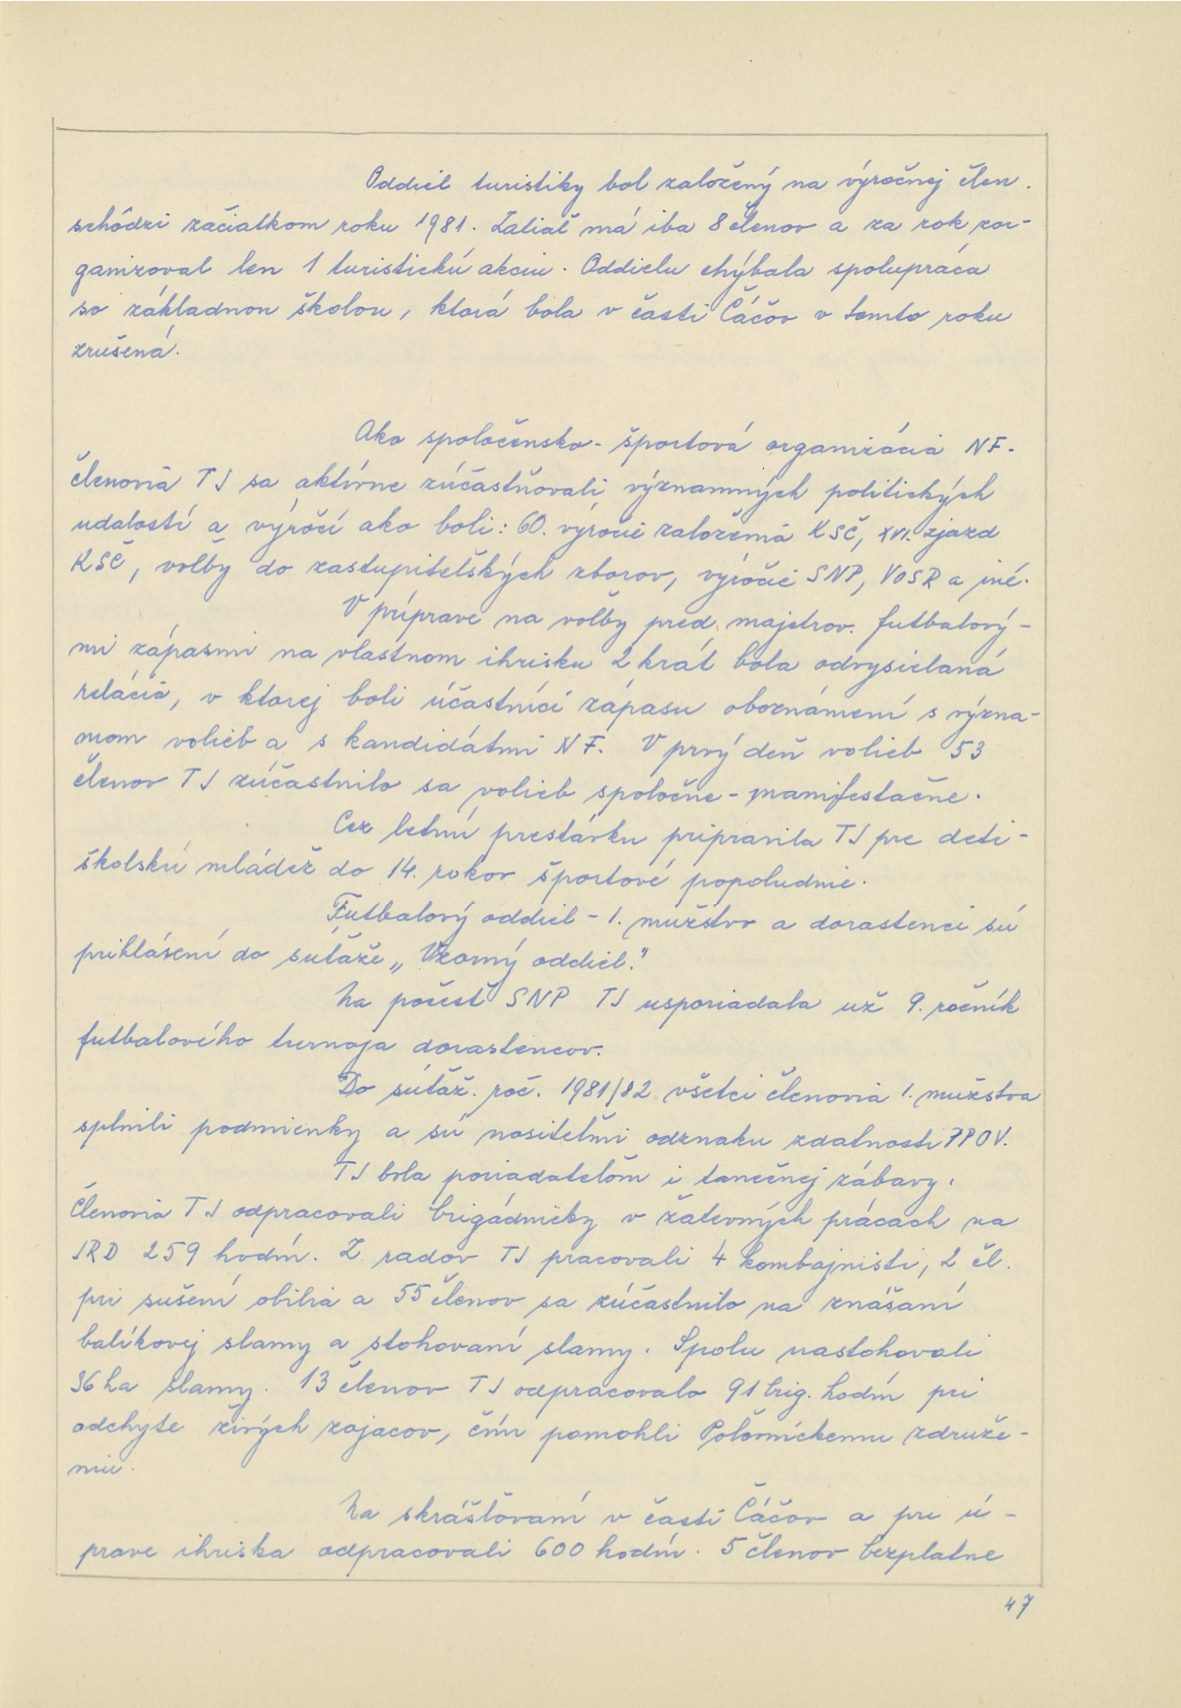 Oddiel turistiky bol založený na výročnej člen.
schôdzi začiatkom roku 1981. Zatiaľ má iba 8 členov a za rok zor-
ganizoval len 1 turistickú akciu. Oddielu chýbala spolupráca
so základnou školou, ktorá bola v časti Čáčov v tomto roku
zrušená.
Ako spoločensko-športová organizácia NF-
členovia TJ sa aktívne zúčastňovali významných politických
udalostí a výročí ako boli: 60. výročie založenia KSČ, XVI. zjazd
KSČ, voľby do zastupiteľských zborov, výročie SNP, VOSR a iné.
V príprave na voľby pred majstrov. futbalový-
mi zápasmi na vlastnom ihrisku 2 krát bola odvysielaná
relácia, v ktorej boli účastníci zápasu oboznámení s význa-
mom volieb a s kandidátmi NF. V prvý deň volieb 53
členov TJ zúčastnilo sa volieb spoločne - manifestačne.
Cez letnú prestávku pripravila TJ pre deti -
školskú mládež do 14. rokov športové popoludnie.
Futbalový oddiel - 1. mužstvo a dorastenci sú
prihlásení do súťaže „Vzorný oddiel."
Na počesť SNP TJ usporiadala už 9. ročník
futbalového turnaja dorastencov.
Do súťaž. roč. 1981/82 všetci členovia 1. mužstva
splnili podmienky a sú nositeľmi odznaku zdatnosti PPOV.
TJ bola poriadateľom i tanečnej zábavy.
Členovia TJ odpracovali brigádnicky v žatevných prácach na
JRD 259 hodín. Z radov TJ pracovali 4 kombajnisti, 2 čl.
pri sušení obilia a 55 členov sa zúčastnilo na znášaní
balíkovej slamy a stohovaní slamy. Spolu nastohovali
36 ha slamy. 13 členov TJ odpracovalo 91 brig. hodín pri
odchyte živých zajacov, čím pomohli Poľovníckemu združe-
niu.
Na skrášľovaní v časti Čáčov a pri ú-
prave ihriska odpracovali 600 hodín. 5 členov bezplatne
47